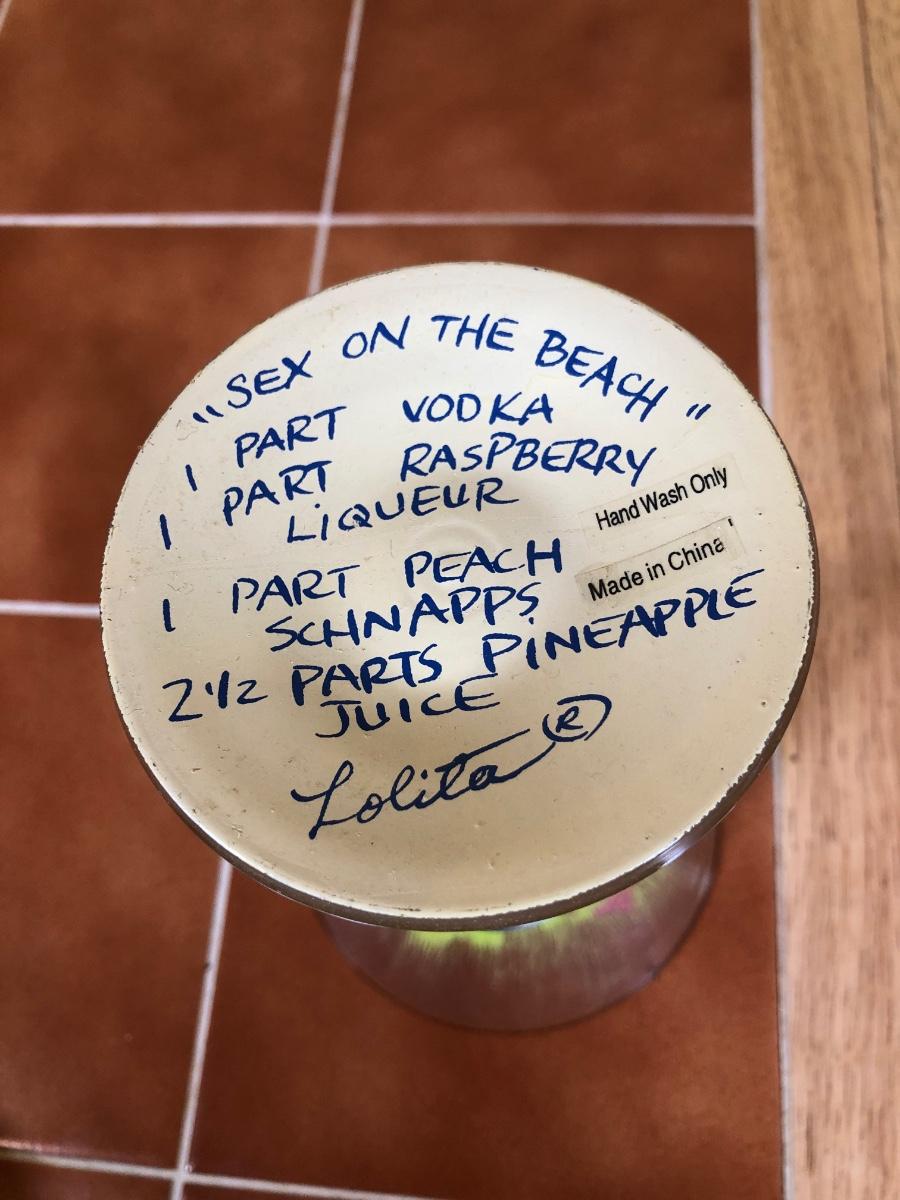 "SEX ON THE BEACH"
1 PART VODKA
1 PART RASPBERRY
LIQUEUR
Hand Wash Only
Made in China
1 PART PEACH
SCHNAPPS
2 1/2 PARTS PINEAPPLE
JUICE
Lolita ®